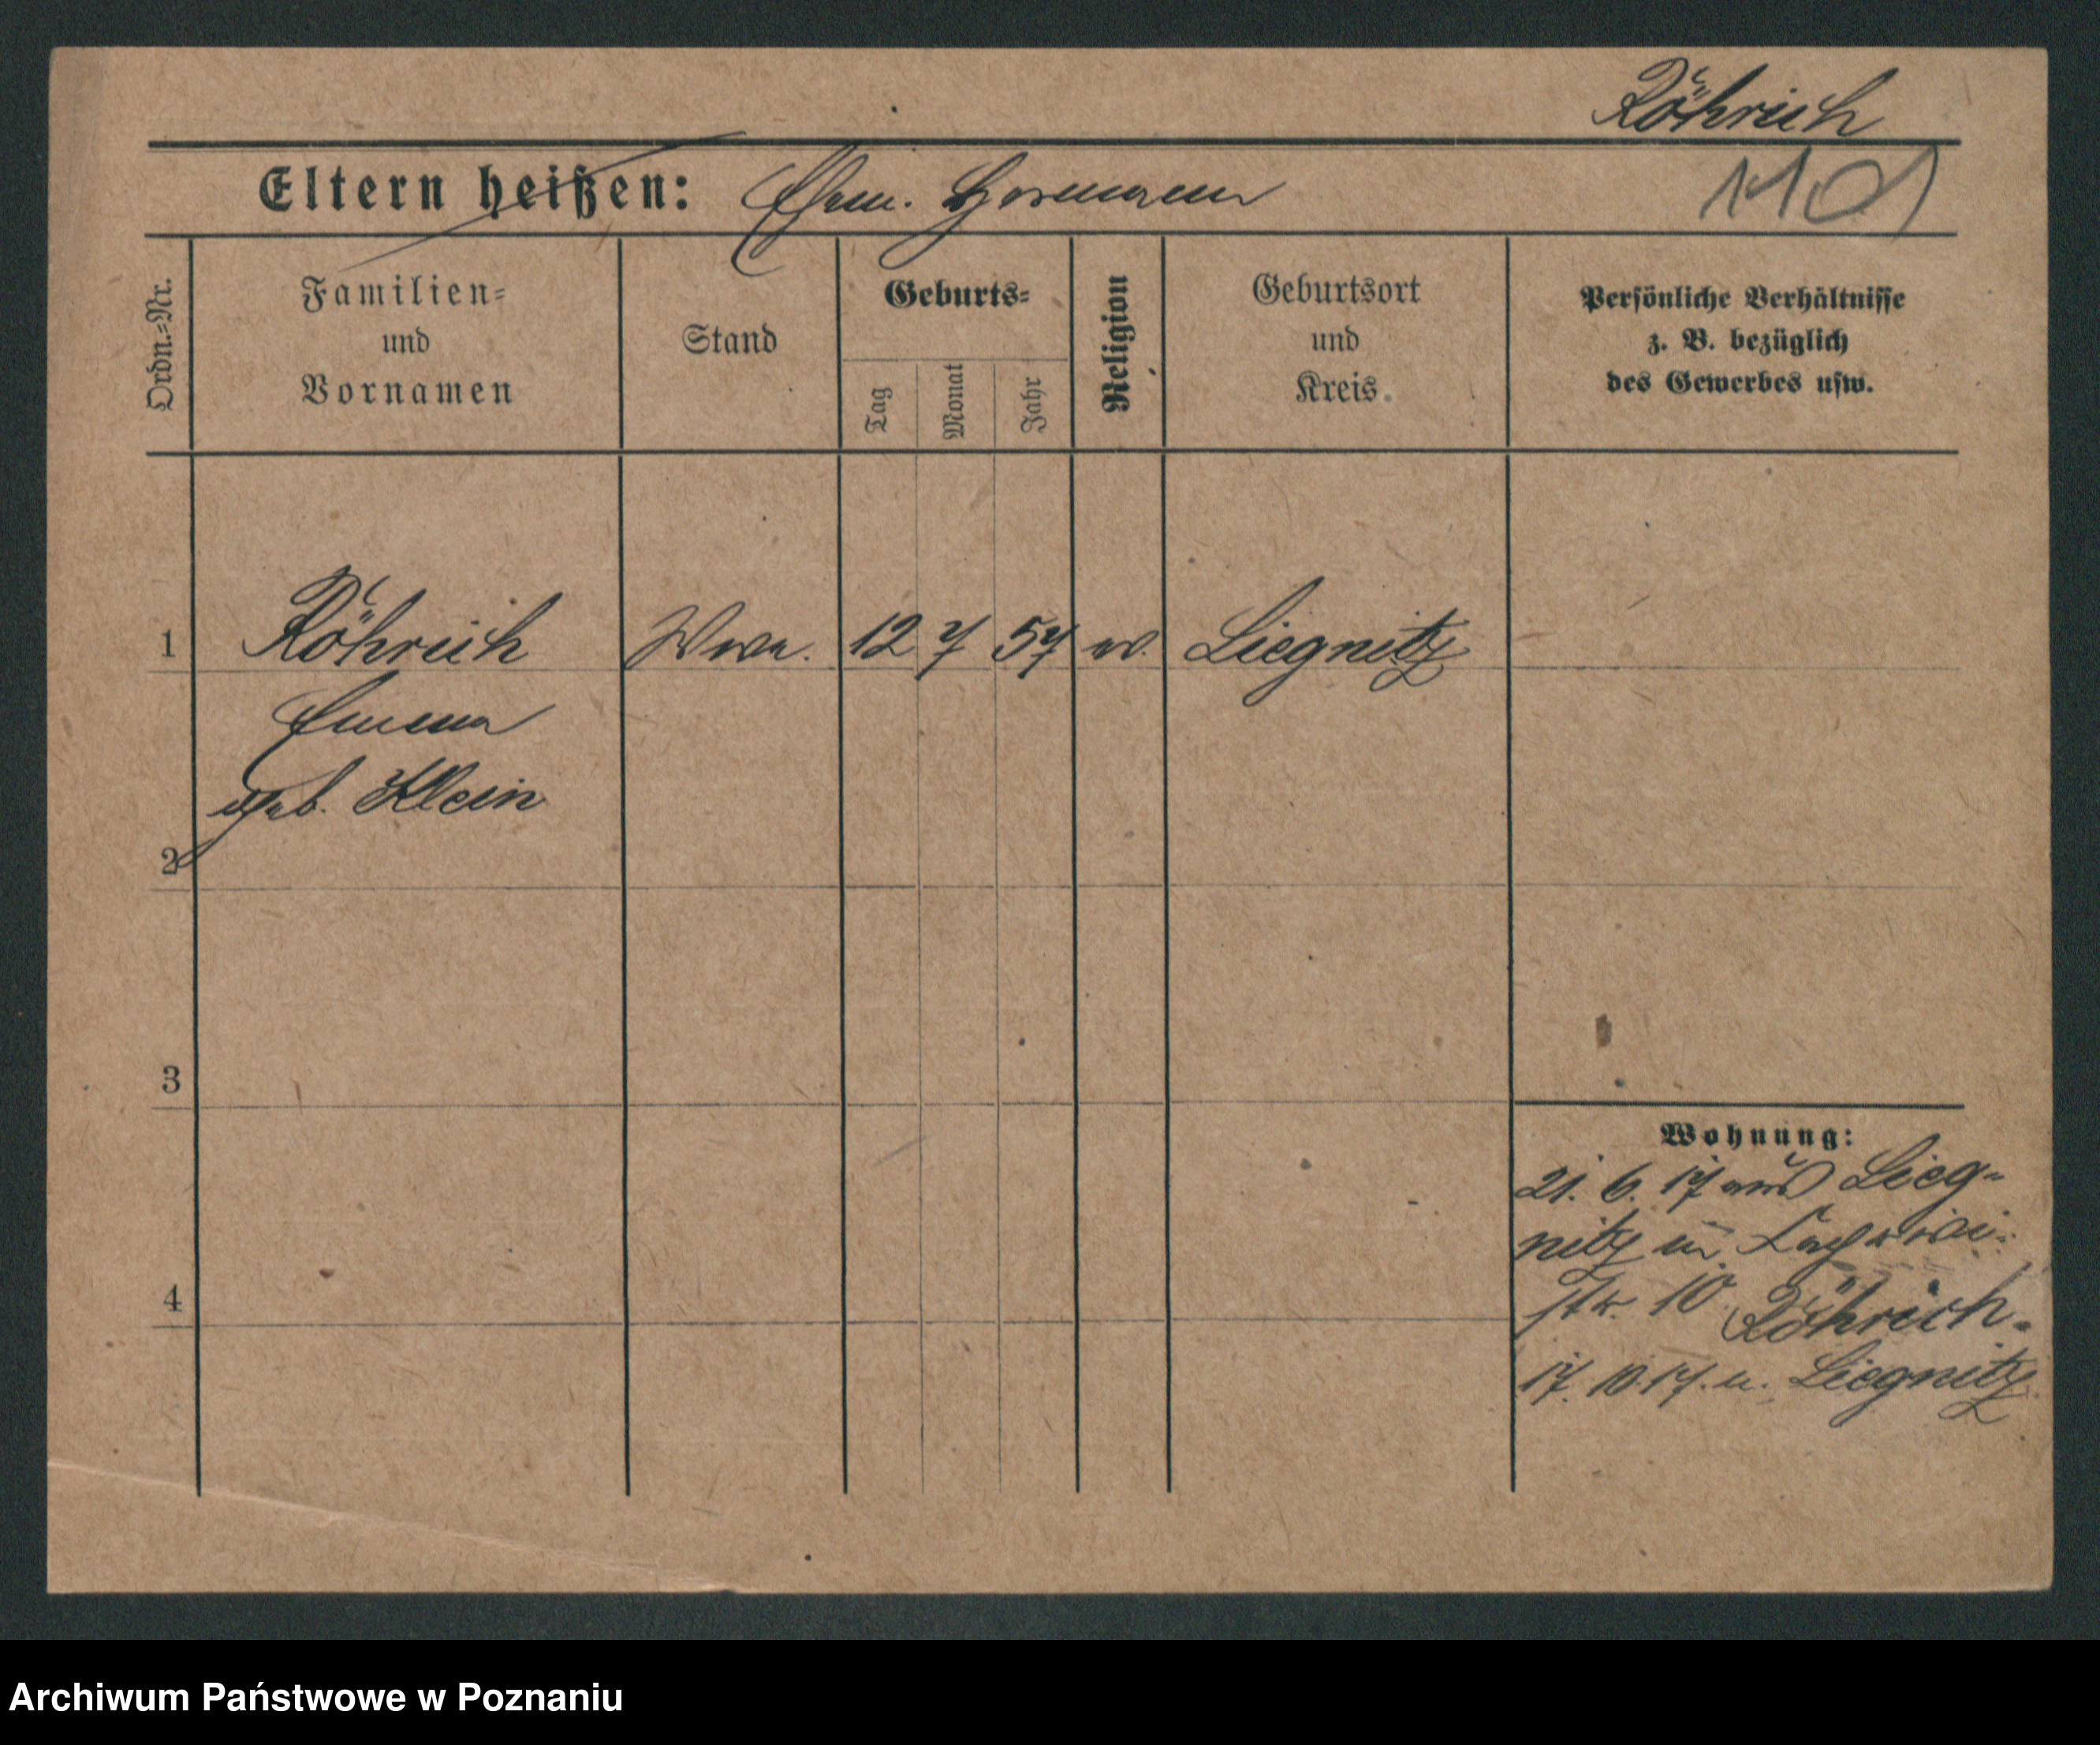 Röhrich
Eltern heißen: Ehem. Hermann
1101
Ordn.=Nr.
Familien=
und
Vornamen
Stand
Geburts=
Tag
Monat
Jahr
Religion
Geburtsort
und
Kreis.
Persönliche Verhältnisse
z. B. bezüglich
des Gewerbes usw.
1 Röhrich Wwe. 12 7 57 ev. Liegnitz
Emma
geb. Klein
2
3
4
Wohnung:
21. 6. 17 aus Lieg-
nitz in
str. 10. Röhrich.
17. 10. 17. n. Liegnitz
Archiwum Państwowe w Poznaniu